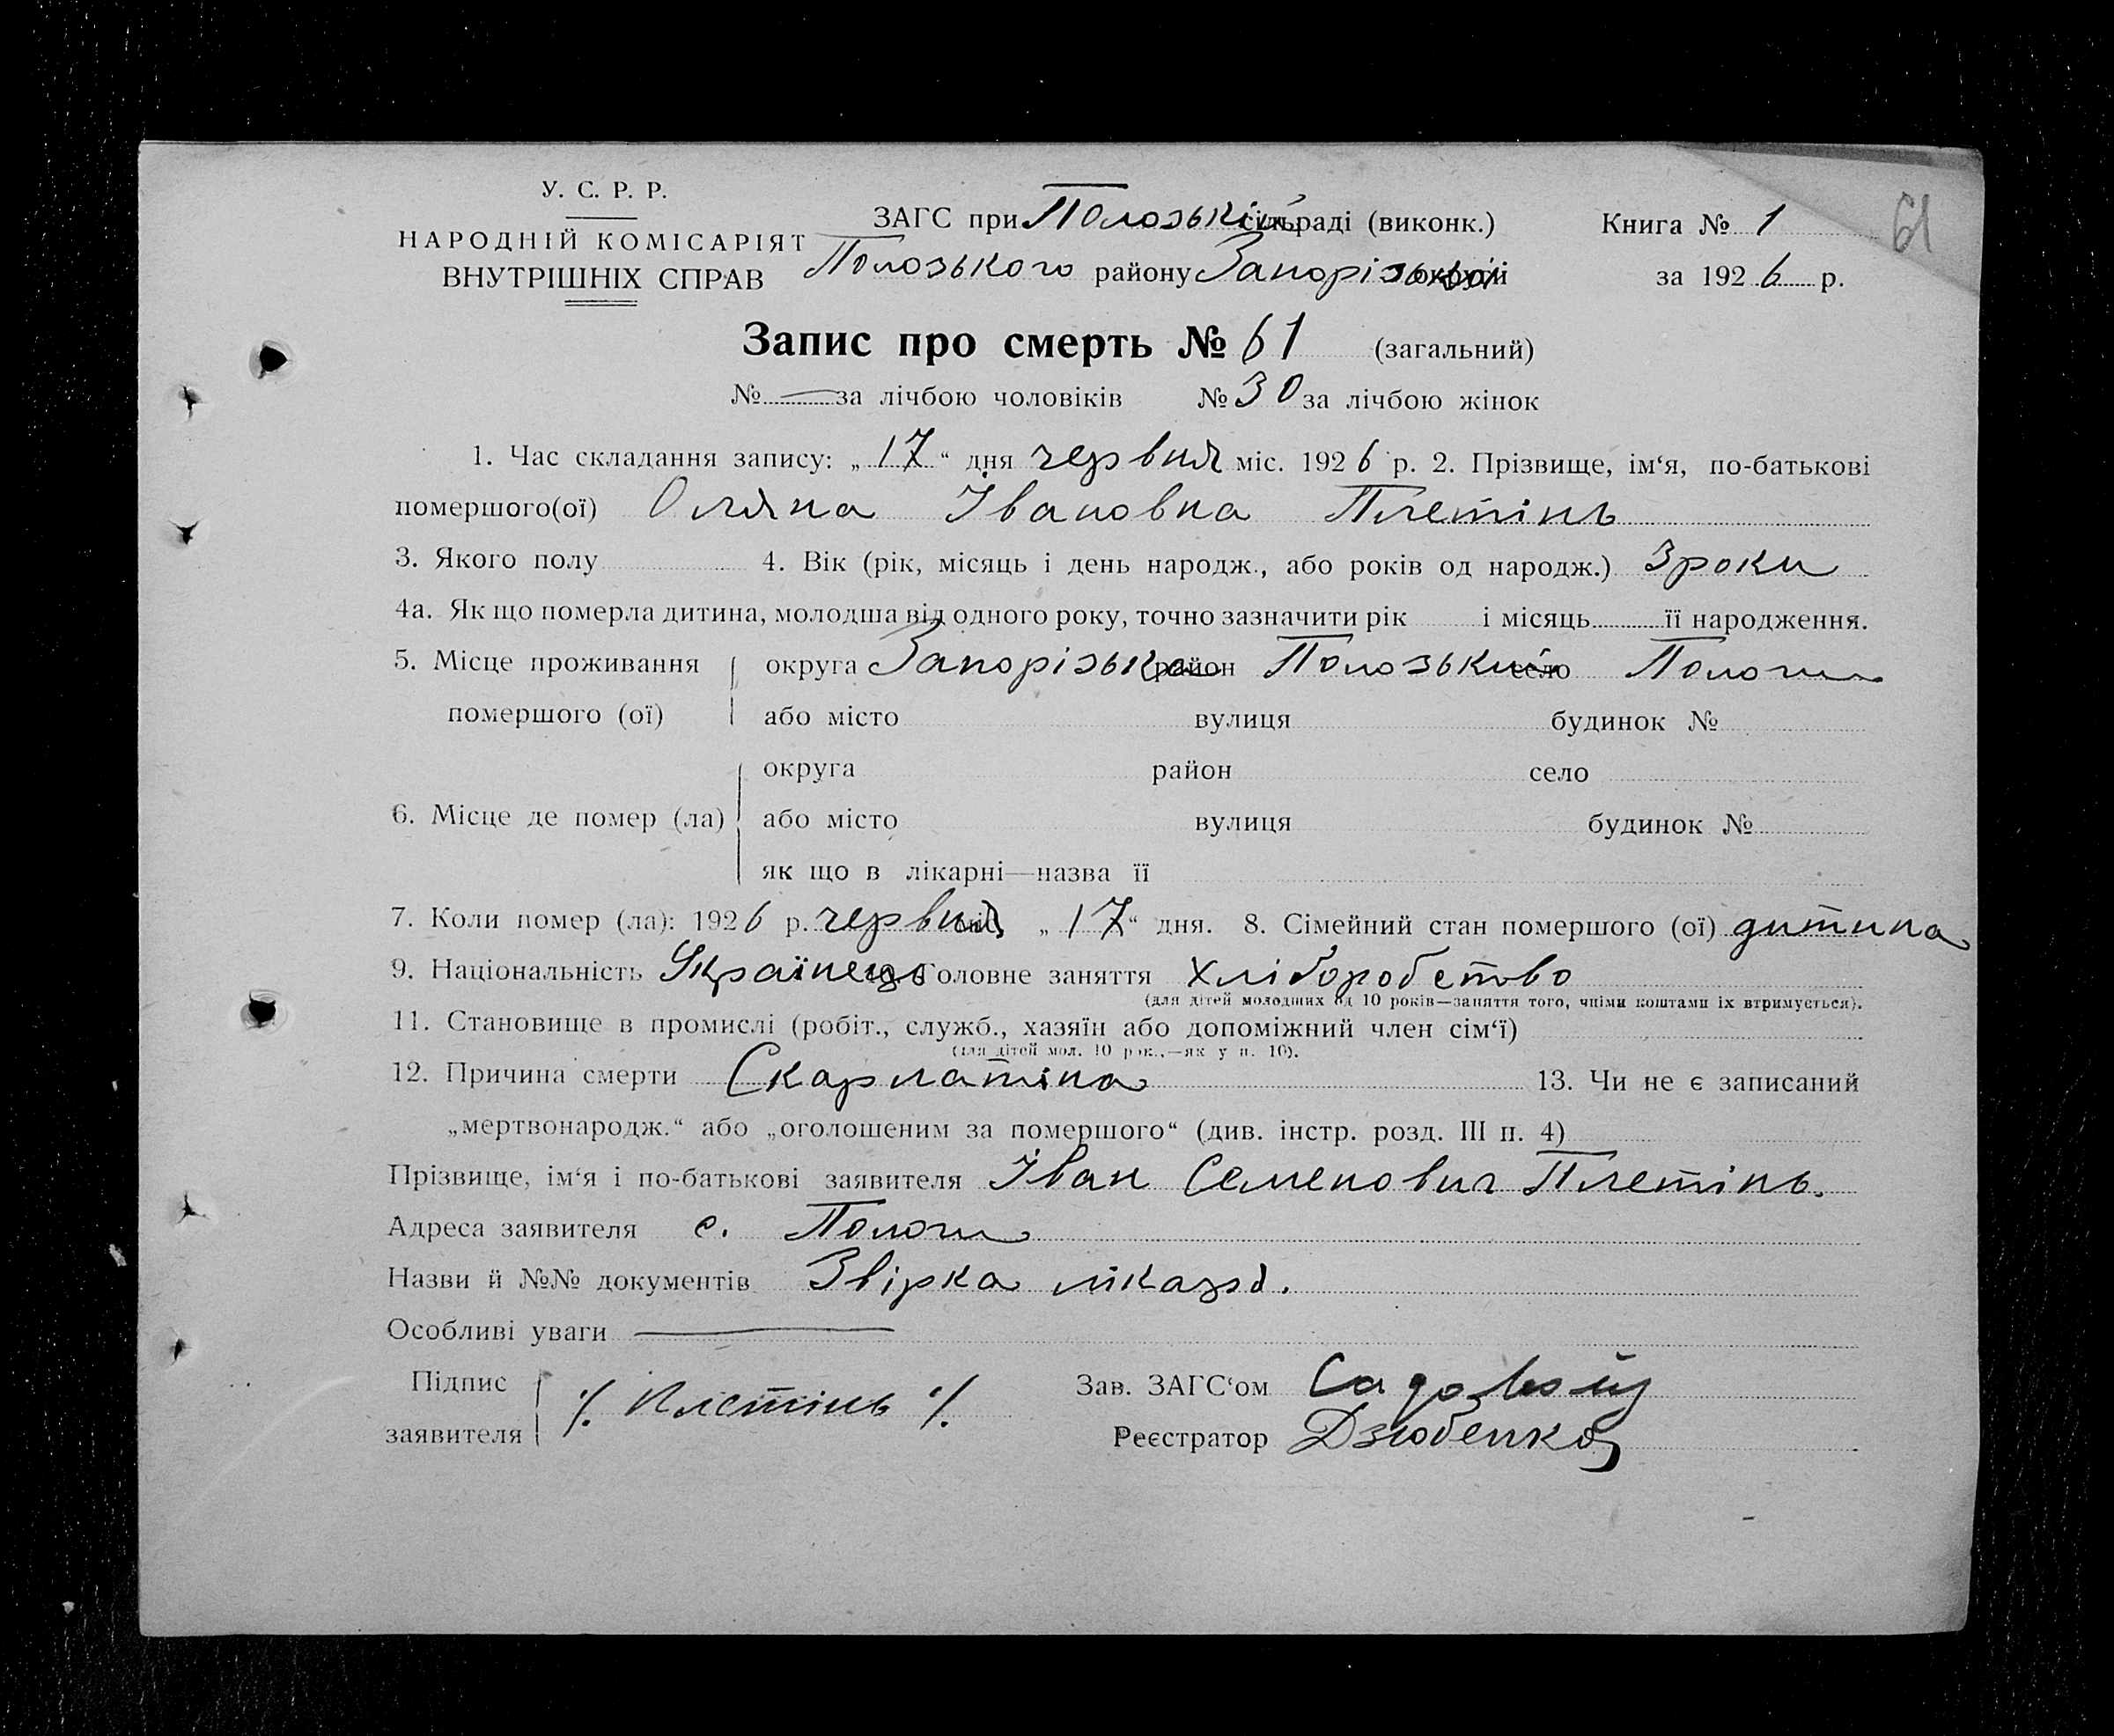 У. С. Р. Р.
НАРОДНІЙ КОМІСАРІЯТ
ВНУТРІШНІХ СПРАВ
ЗАГС при Полозькій сільраді (виконк.)
Полозького району Запорізької округи
Книга № 1
за 1926 р.
61
Запис про смерть № 61 (загальний)
№ — за лічбою чоловіків № 30 за лічбою жінок
1. Час складання запису: „17“ дня червня міс. 1926 р. 2. Прізвище, ім‘я, по-батькові
помершого(ої) Оляна Івановна Плетінь
3. Якого полу 4. Вік (рік, місяць і день народж., або років од народж.) 3 роки
4а. Як що померла дитина, молодша від одного року, точно зазначити рік і місяць її народження.
5. Місце проживання округа Запорізька район Полозький село Пологи
помершого (ої) або місто вулиця будинок №
округа район село
6. Місце де помер (ла) або місто вулиця будинок №
як що в лікарні—назва її
7. Коли помер (ла): 1926 р. червня міс. „17“ дня. 8. Сімейний стан помершого (ої) дитина
9. Національність Українець 10. Головне заняття Хліборобство
(для дітей молодших од 10 років—заняття того, чиїми коштами їх втримується).
11. Становище в промислі (робіт., служб., хазяїн або допоміжний член сім‘ї)
(для дітей мол. 10 рок.,—як у п. 10).
12. Причина смерти Скарлатіна 13. Чи не є записаний
„мертвонародж.“ або „оголошеним за помершого“ (див. інстр. розд. III п. 4)
Прізвище, ім‘я і по-батькові заявителя Іван Семенович Плетінь.
Адреса заявителя с. Пологи
Назви й №№ документів Звірка лікаря.
Особливі уваги —
Підпис
заявителя ·/. Плетінь ·/.
Зав. ЗАГС‘ом Садовый
Реєстратор Дзюбенко